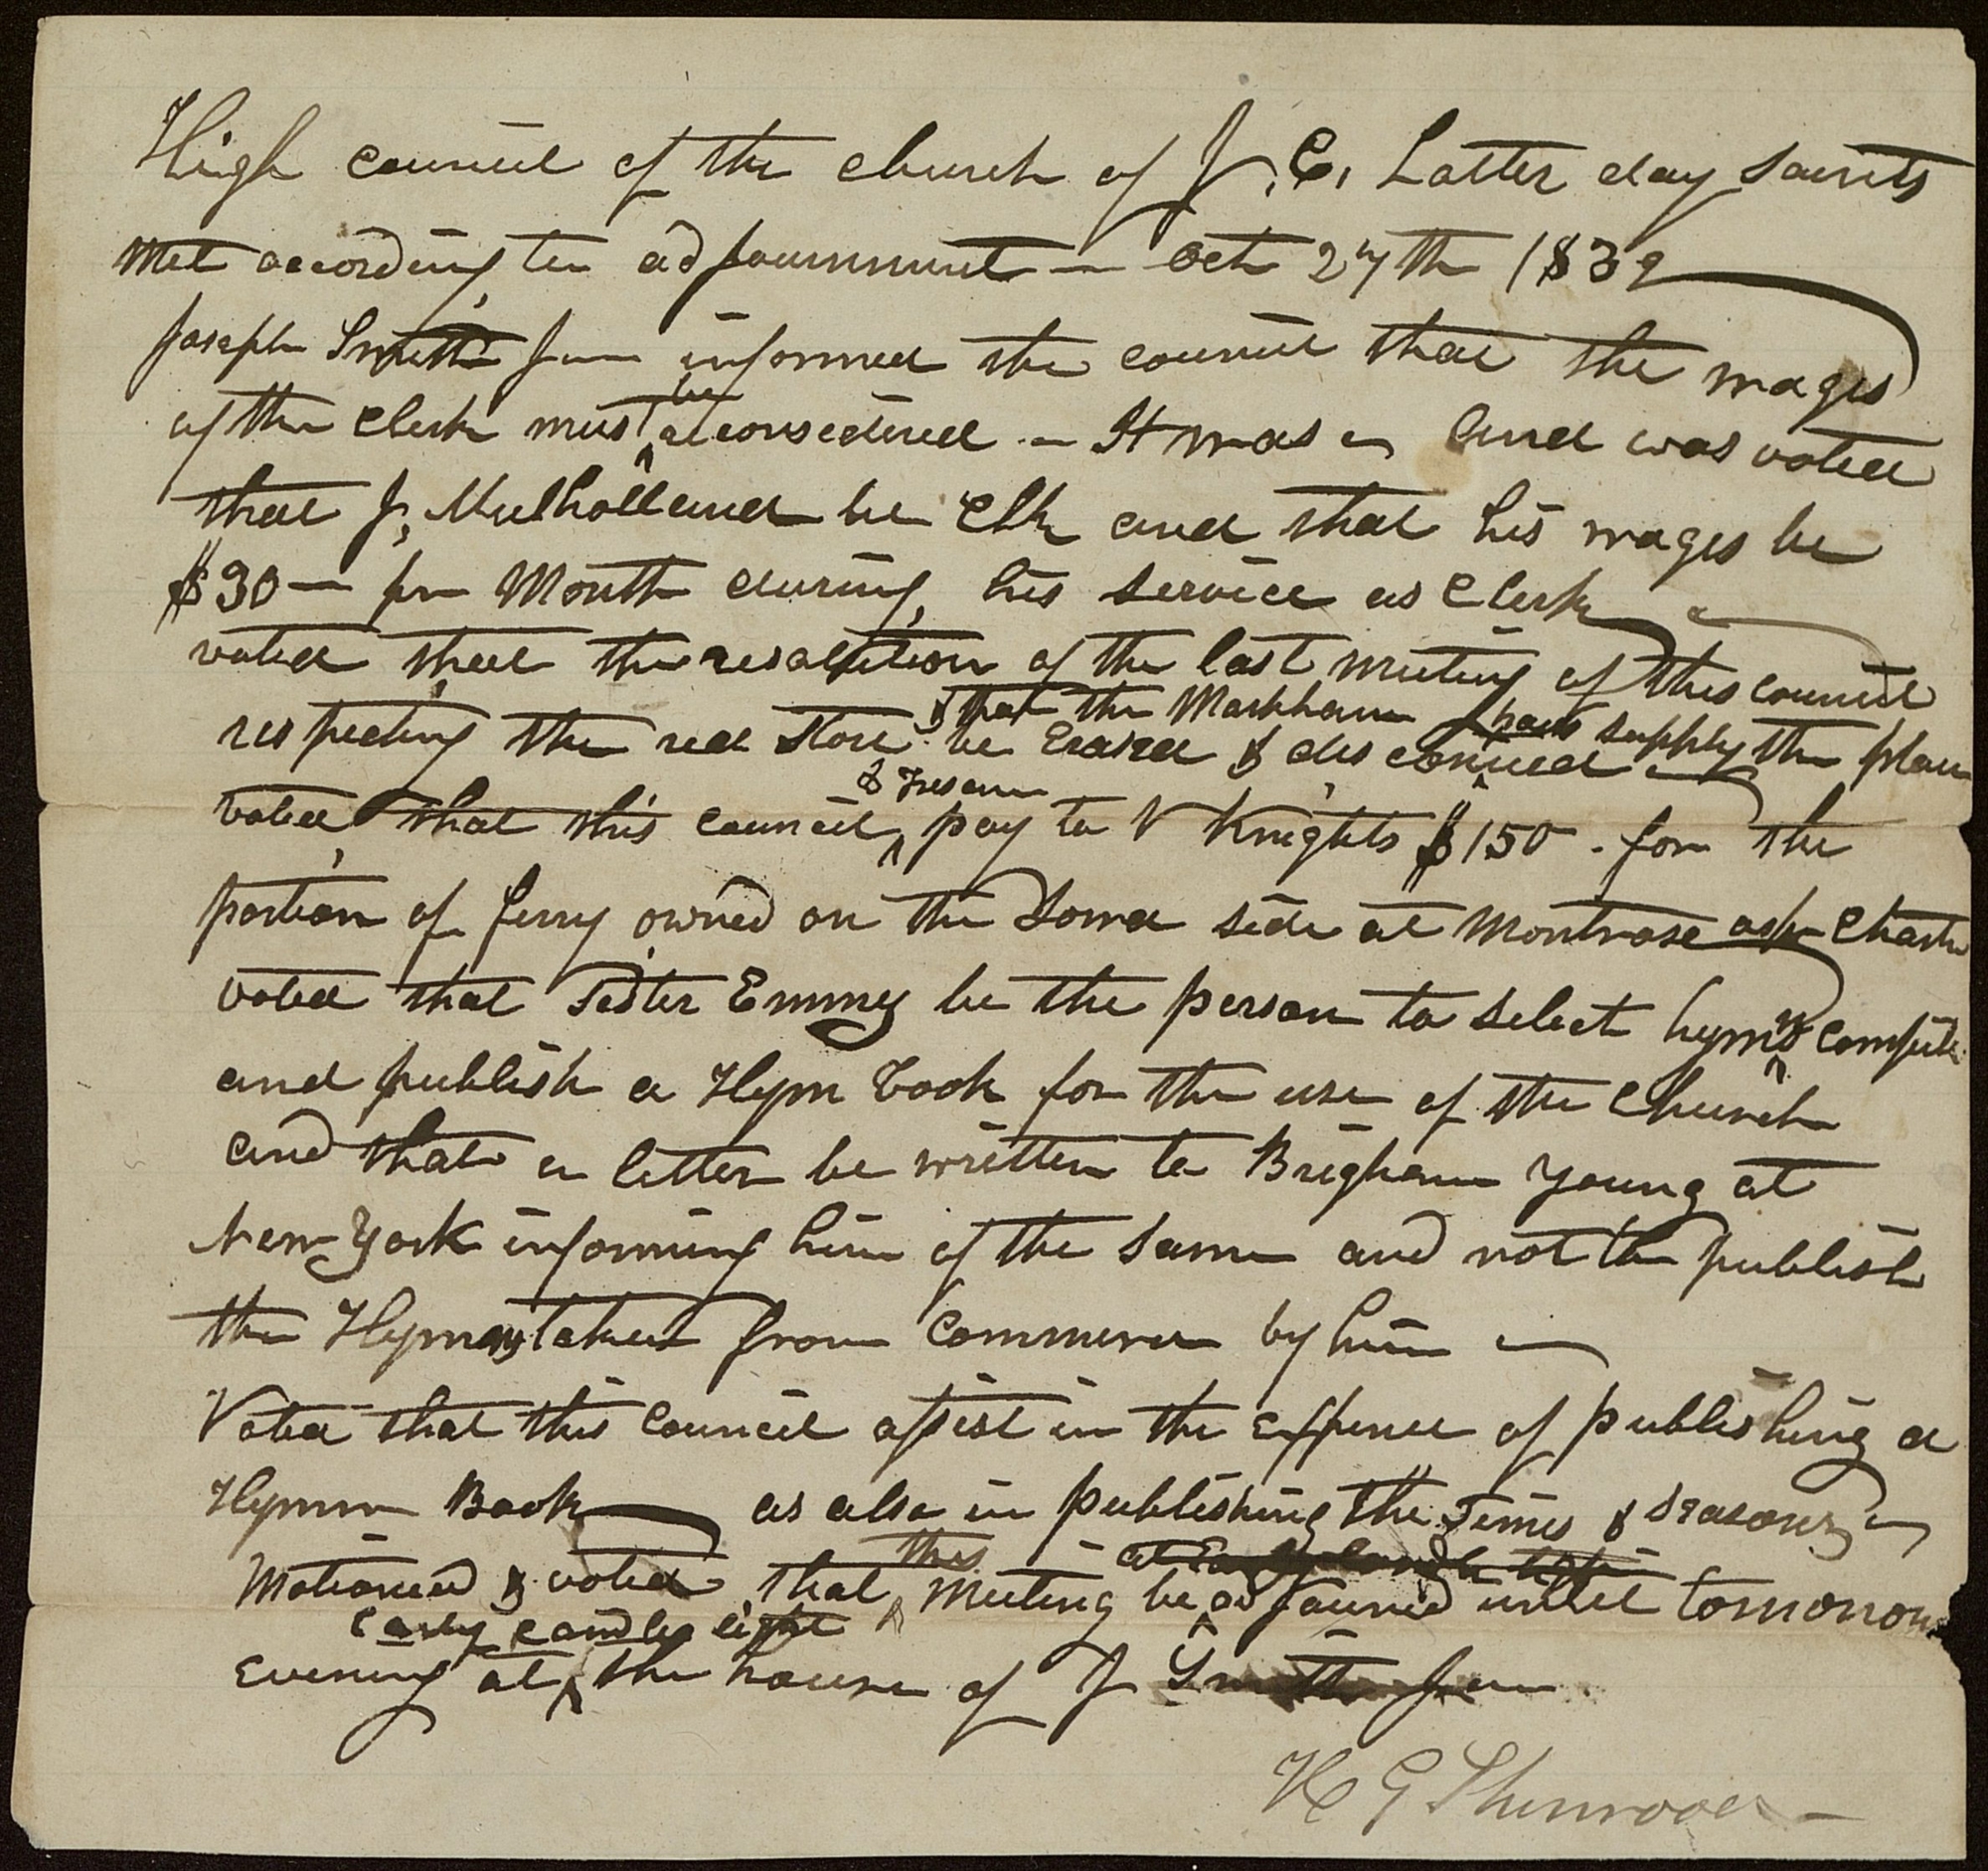 High council of the church of J. C. Latter day Saints
met according to adjournment — Oct 27th 1839
Joseph Smith Jun informed the council that the wages
be
of the Clerk must considered — It was — and was voted
that J. Mulholland be Clk and that his wages be
$30 — pr Month during his service as Clerk —
voted that the resolution of the last meeting of this council
& that the Markham have supply the place
respecting the red store be Erased &
& Treasurer
voted that this council pay to V Knights $150 - for the
portion of ferry owned on the Iowa side at Montrose as pr Charter
voted that Sister Emmy be the person to select hymns compile
and publish a Hym Book for the use of the Church
and that a letter be written to Brigham Young at
New York informing him of the same and not to publish
the Hymns taken from Commerce by him —
Voted that this council assist in the Expence of publishing a
Hymn Book — as also in publishing the Times & Seasons —
this at Early candle light
Motioned & voted that meeting be adjourned until tomorrow
Early candle light
Evening at the house of J Smith Jun
H G Sherwood —